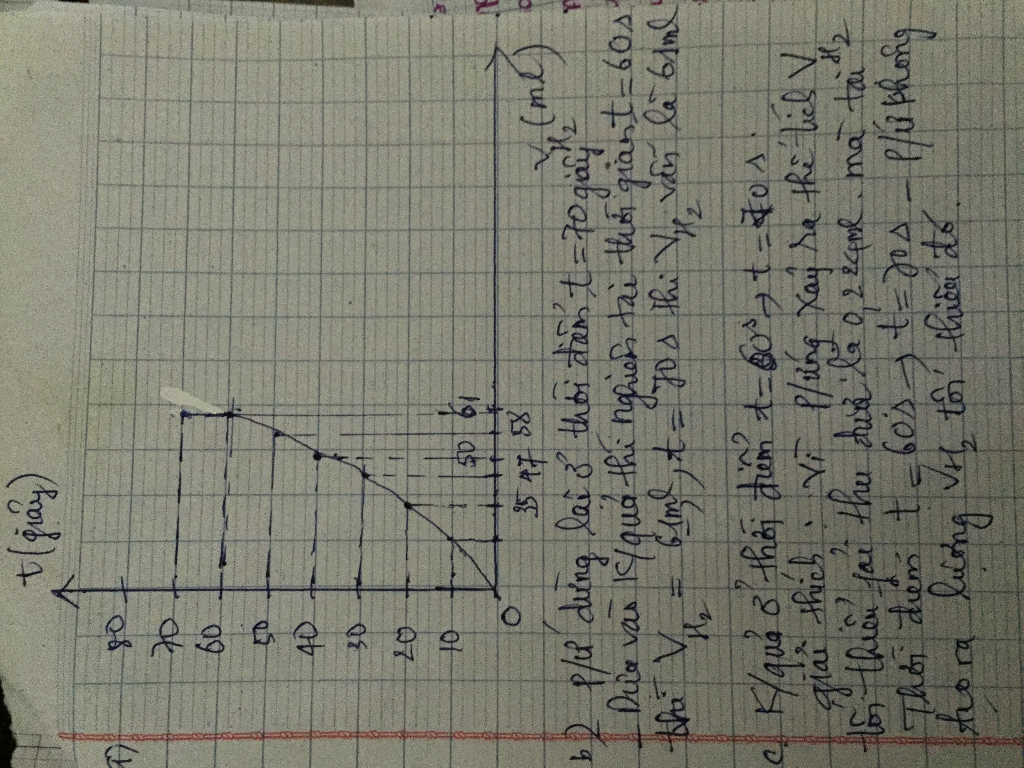 t (giây)
80
70
60
50
40
30
20
10
O
35 47 50 58 61
V H2 (ml)
b) P/ứ dừng lại ở thời điểm t = 70 giây
Dựa vào K/quả thí nghiệm tại thời gian t = 60s
thì V H2 = 61ml, t = 70s thì V H2 vẫn là 61ml
c. K/quả ở thời điểm t = 60s → t = 70s.
giải thích. Vì P/ứng xảy ra thể tích V H2
tối thiểu phải thu được là 0,224ml. mà tại
Thời điểm t = 60s → t = 70s - P/ứ không
cho ra lượng V H2 tối thiểu đó.